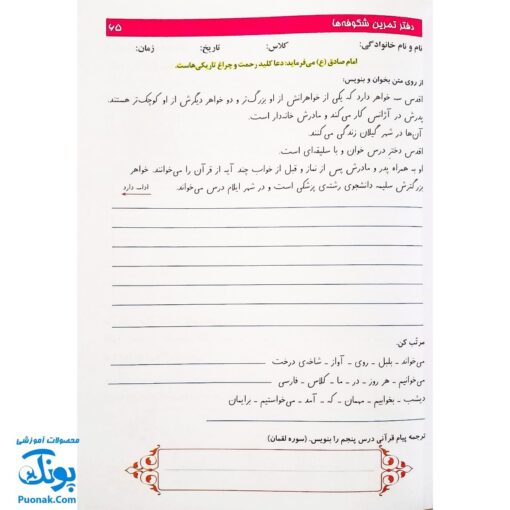 دفتر تمرین شکوفه‌ها ۶۵
نام و نام خانوادگی: کلاس: تاریخ: زمان:
امام صادق (ع) می‌فرماید: دعا کلید رحمت و چراغ تاریکی‌هاست.
از روی متن بخوان و بنویس:
اقدس سه خواهر دارد که یکی از خواهرانش از او بزرگ‌تر و دو خواهر دیگرش از او کوچک‌تر هستند.
پدرش در آژانس کار می‌کند و مادرش خانه‌دار است.
آن‌ها در شهر گیلان زندگی می‌کنند.
اقدس دختر درس خوان و با سلیقه‌ای است.
او به همراه پدر و مادرش پس از نماز و قبل از خواب چند آیه از قرآن را می‌خوانند. خواهر
بزرگترش سلیمه دانشجوی رشته‌ی پزشکی است و در شهر ایلام درس می‌خواند.
ادامه دارد
مرتّب کن.
می‌خواند ـ بلبل ـ روی ـ آواز ـ شاخه‌ی درخت
می‌خوانیم ـ هر روز ـ در ـ ما ـ کلاس ـ فارسی
دیشب ـ بخوابیم ـ مهمان ـ که ـ آمد ـ می‌خواستیم ـ برایمان
ترجمه پیام قرآنی درس پنجم را بنویس. (سوره لقمان)
محصولات آموزشی
پونک
Puonak.Com